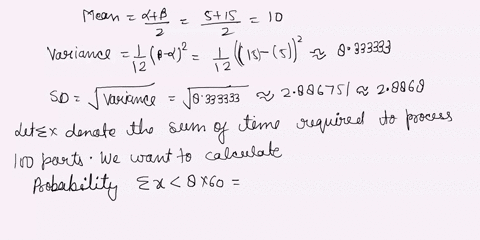 Mean = α+β/2 = 5+15/2 = 10
Variance = 1/12 (β-α)² = 1/12 ((15)-(5))² ≈ 8.333333
SD = √Variance = √8.333333 ≈ 2.886751 ≈ 2.8868
Let Σx denote the sum of time required to process
100 parts. We want to calculate
Probability Σx < 8×60 =